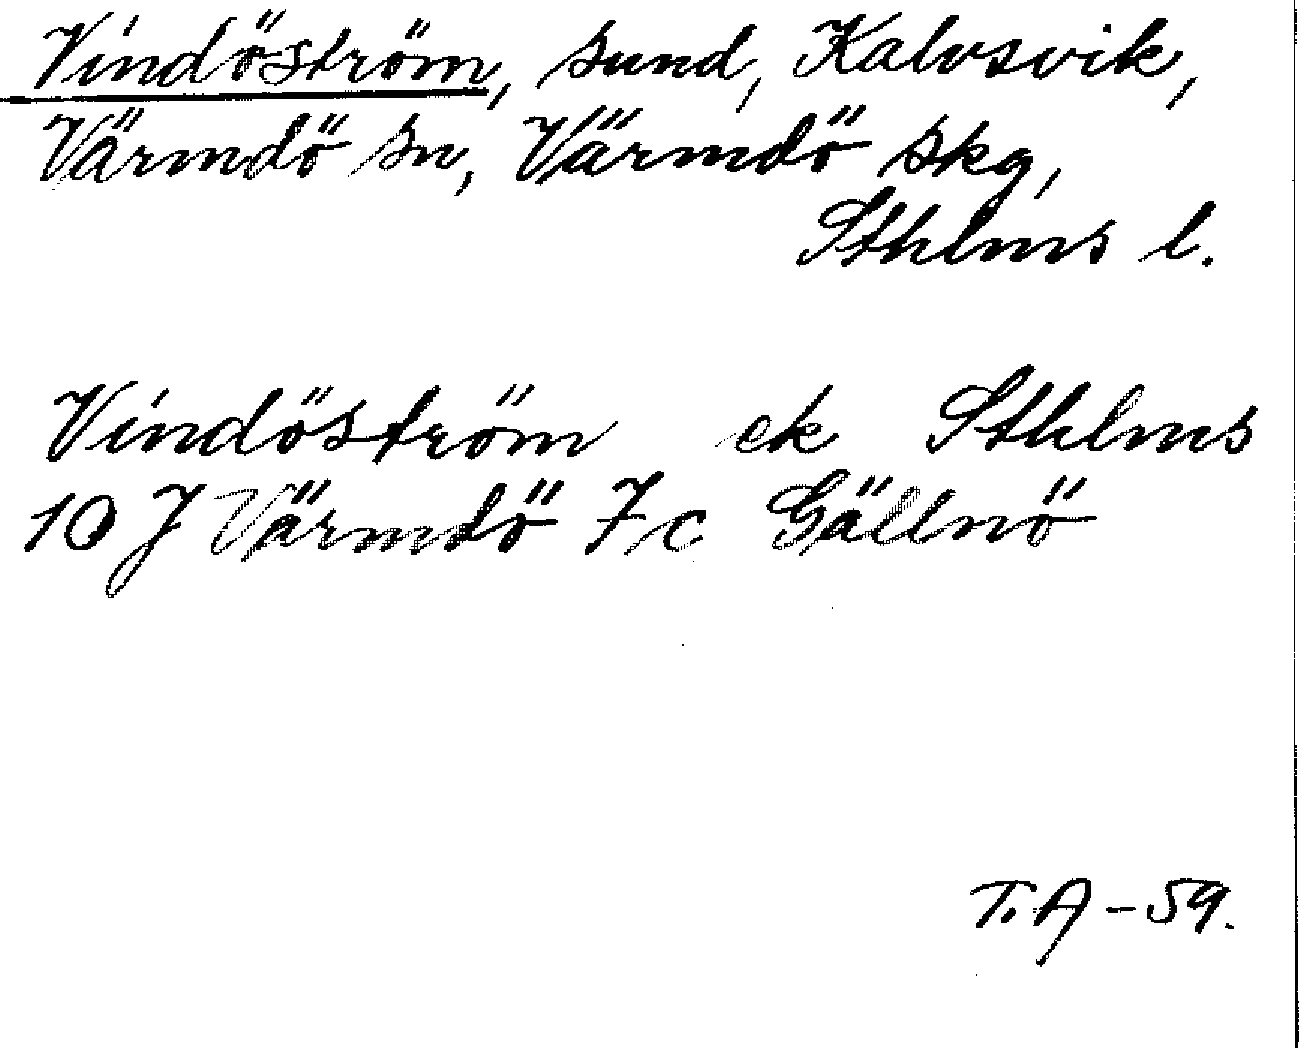 Vindöström, sund, Kalvsvik,
Värmdö sn, Värmdö skg,
Sthlms l.
Vindöström ek Sthlms
10 J Värmdö 7 c Gällnö
T. A - 59.